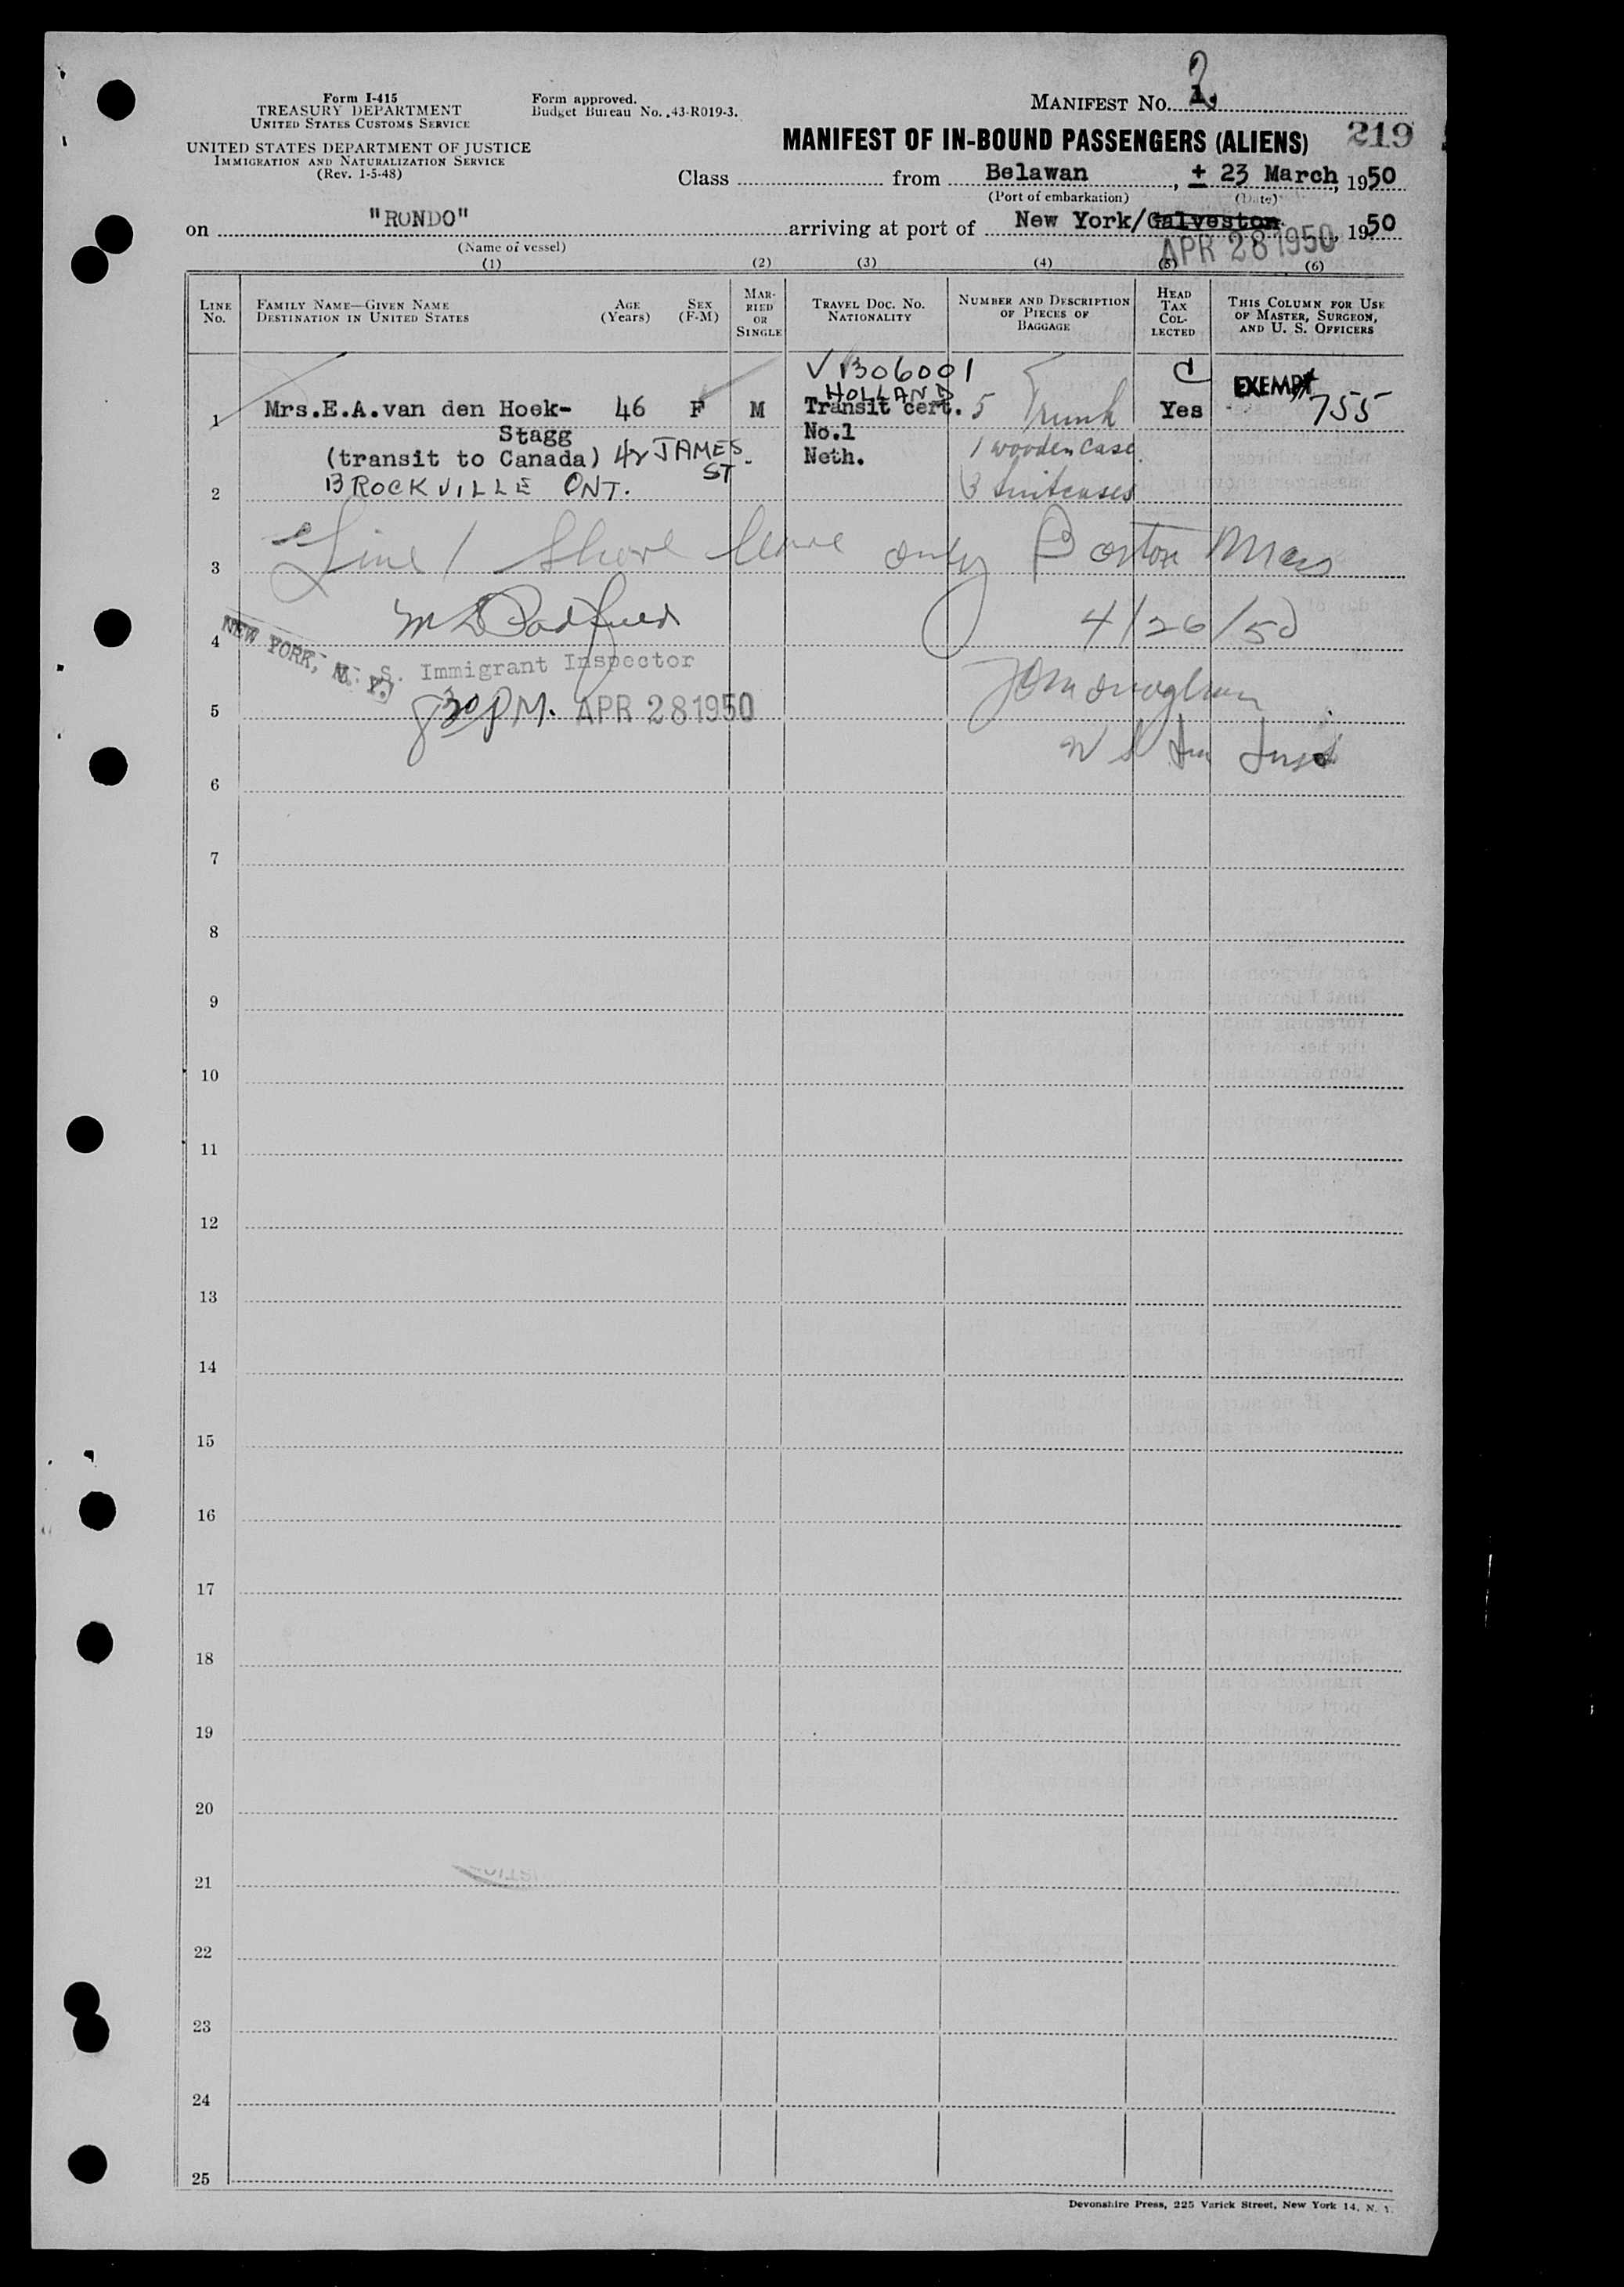 Form I-415
TREASURY DEPARTMENT
UNITED STATES CUSTOMS SERVICE
UNITED STATES DEPARTMENT OF JUSTICE
IMMIGRATION AND NATURALIZATION SERVICE
(Rev. 1-5-48)
Form approved.
Budget Bureau No. 43-R019-3.
MANIFEST No. 2
MANIFEST OF IN-BOUND PASSENGERS (ALIENS) 219
Class from Belawan, ± 23 March, 1950
(Port of embarkation) (Date)
on "RONDO" arriving at port of New York/Galveston, 1950
(Name of vessel)
APR 28 1950
(1) (2) (3) (4) (5) (6)
LINE No.
FAMILY NAME—GIVEN NAME
DESTINATION IN UNITED STATES
AGE (Years)
SEX (F-M)
MARRIED OR SINGLE
TRAVEL DOC. NO.
NATIONALITY
NUMBER AND DESCRIPTION OF PIECES OF BAGGAGE
HEAD TAX COLLECTED
THIS COLUMN FOR USE OF MASTER, SURGEON, AND U. S. OFFICERS
V 1306001
HOLLAND
EXEMPT
1 Mrs.E.A.van den Hoek- 46 F M Transit cert. 5 Trunk Yes 755
Stagg No.1
(transit to Canada) 42 JAMES ST. Neth. 1 wooden case
2 BROCKVILLE ONT. 3 suitcases
3 Line 1 Shore leave only Boston Mass
4 4/26/50
NEW YORK, N. Y.
U. S. Immigrant Inspector
5 8 30 PM. APR 28 1950
6
7
8
9
10
11
12
13
14
15
16
17
18
19
20
21
22
23
24
25
Devonshire Press, 225 Varick Street, New York 14, N. Y.